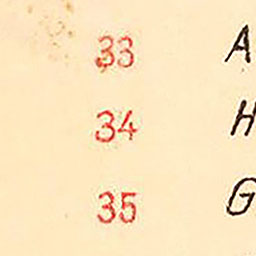 33 A
34 H
35 G